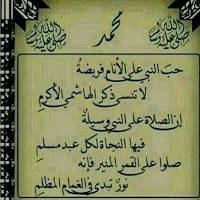 محمد
صلى الله عليه وسلم
صلى الله عليه وسلم
حبُ النبي على الأنام فريضةُ
لا تنسى ذكر الهاشمي الأكرمِ
إن الصلاة على النبي وسيلةُ
فيها النجاة لكل عبد مسلمِ
صلوا على القمر المنير فإنه
نورُ تبدى في الغمام المظلمِ